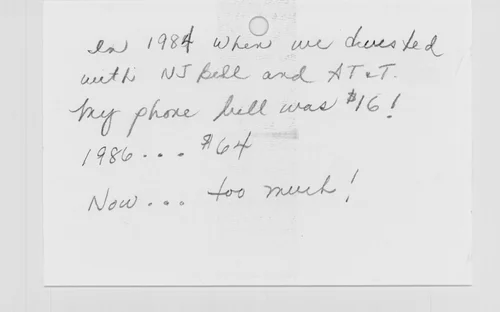 In 1984 when we divested
with NJ Bell and AT&T.
My phone bill was $16!
1986... $64
Now... too much!